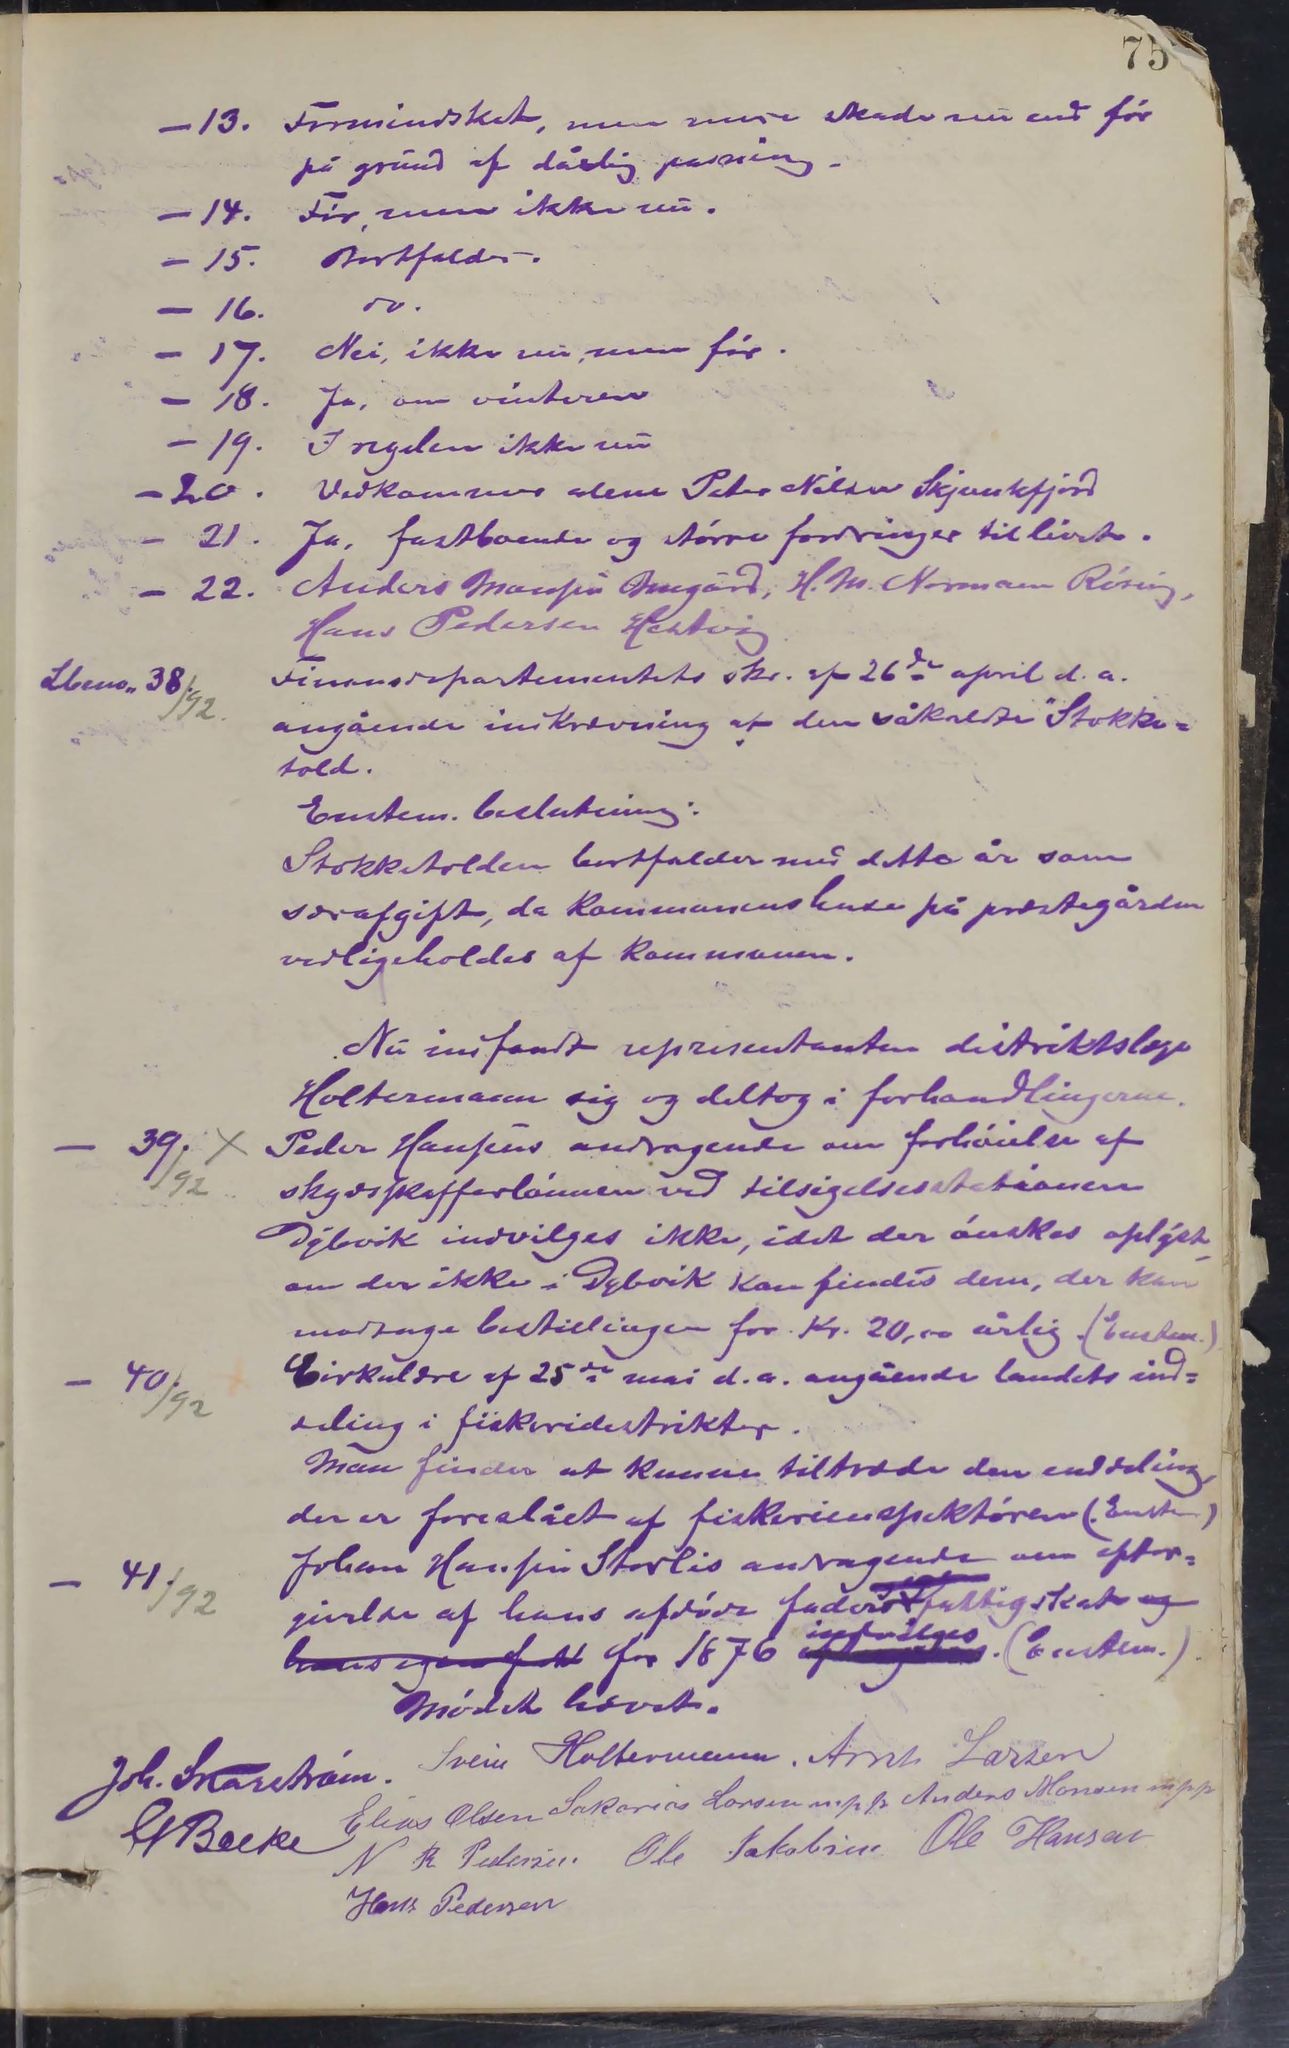 75
— 13. Formindsket, men mere skade nu end før
på grund af dårlig pasning.
— 14. Før, men ikke nu.
— 15. Bortfalder.
— 16. do.
— 17. Nei, ikke nu, men før.
— 18. Ja, om vinteren
— 19. I regelen ikke nu
— 20. Vedkommer alene Peter Nilsen Skjerskfjord
— 21. Ja, fastboende og større fordringer til livet.
— 22. Anders Monsen, H. M. Normann Røsnig,
Hans Pedersen Hestvig
Lbeno. 38/92. Finansdepartementets skr. af 26de april d. a.
angående inkrævning af den såkaldte "Stokke=
told.
Enstem. beslutning:
Stokketolden bortfalder med dette år som
særafgift, da kommunens huse på præstegården
vedligeholdes af kommunen.
Nu indfandt representanten distriktslæge
Holtermann sig og deltog i forhandlingerne.
— 39./92 X Peder Hansens andragende om forhøielse af
skydsskafferlønnen ved tilsigelsesstationen
Dybvik indvilges ikke, idet der ønskes oplyst,
om der ikke i Dybvik kan findes dem, der kan
modtage bestillingen for Kr. 20,00 årlig. (Enstem.)
— 40./92 Cirkulære af 25de mai d. a. angående landets ind=
deling i fiskeridistrikter.
Man finder at kunne tiltræde den inddeling,
der er foreslået af fiskeriinspektøren (Enstem.)
— 41./92 Johan Hansen Storlis andragende om efter=
givelse af hans afdøde faders fattigskat og
hans egen for 1876 indvilges. (Enstem.)
Mødet hævet.
Joh. Snarström. Svein Holtermann. Arnt Larsen
Elias Olsen Sakarias Larsen m p p Anders Monsen m p p
Backe N R Pedersen Ole Jakobsen Ole Hansen
Hans Pedersen